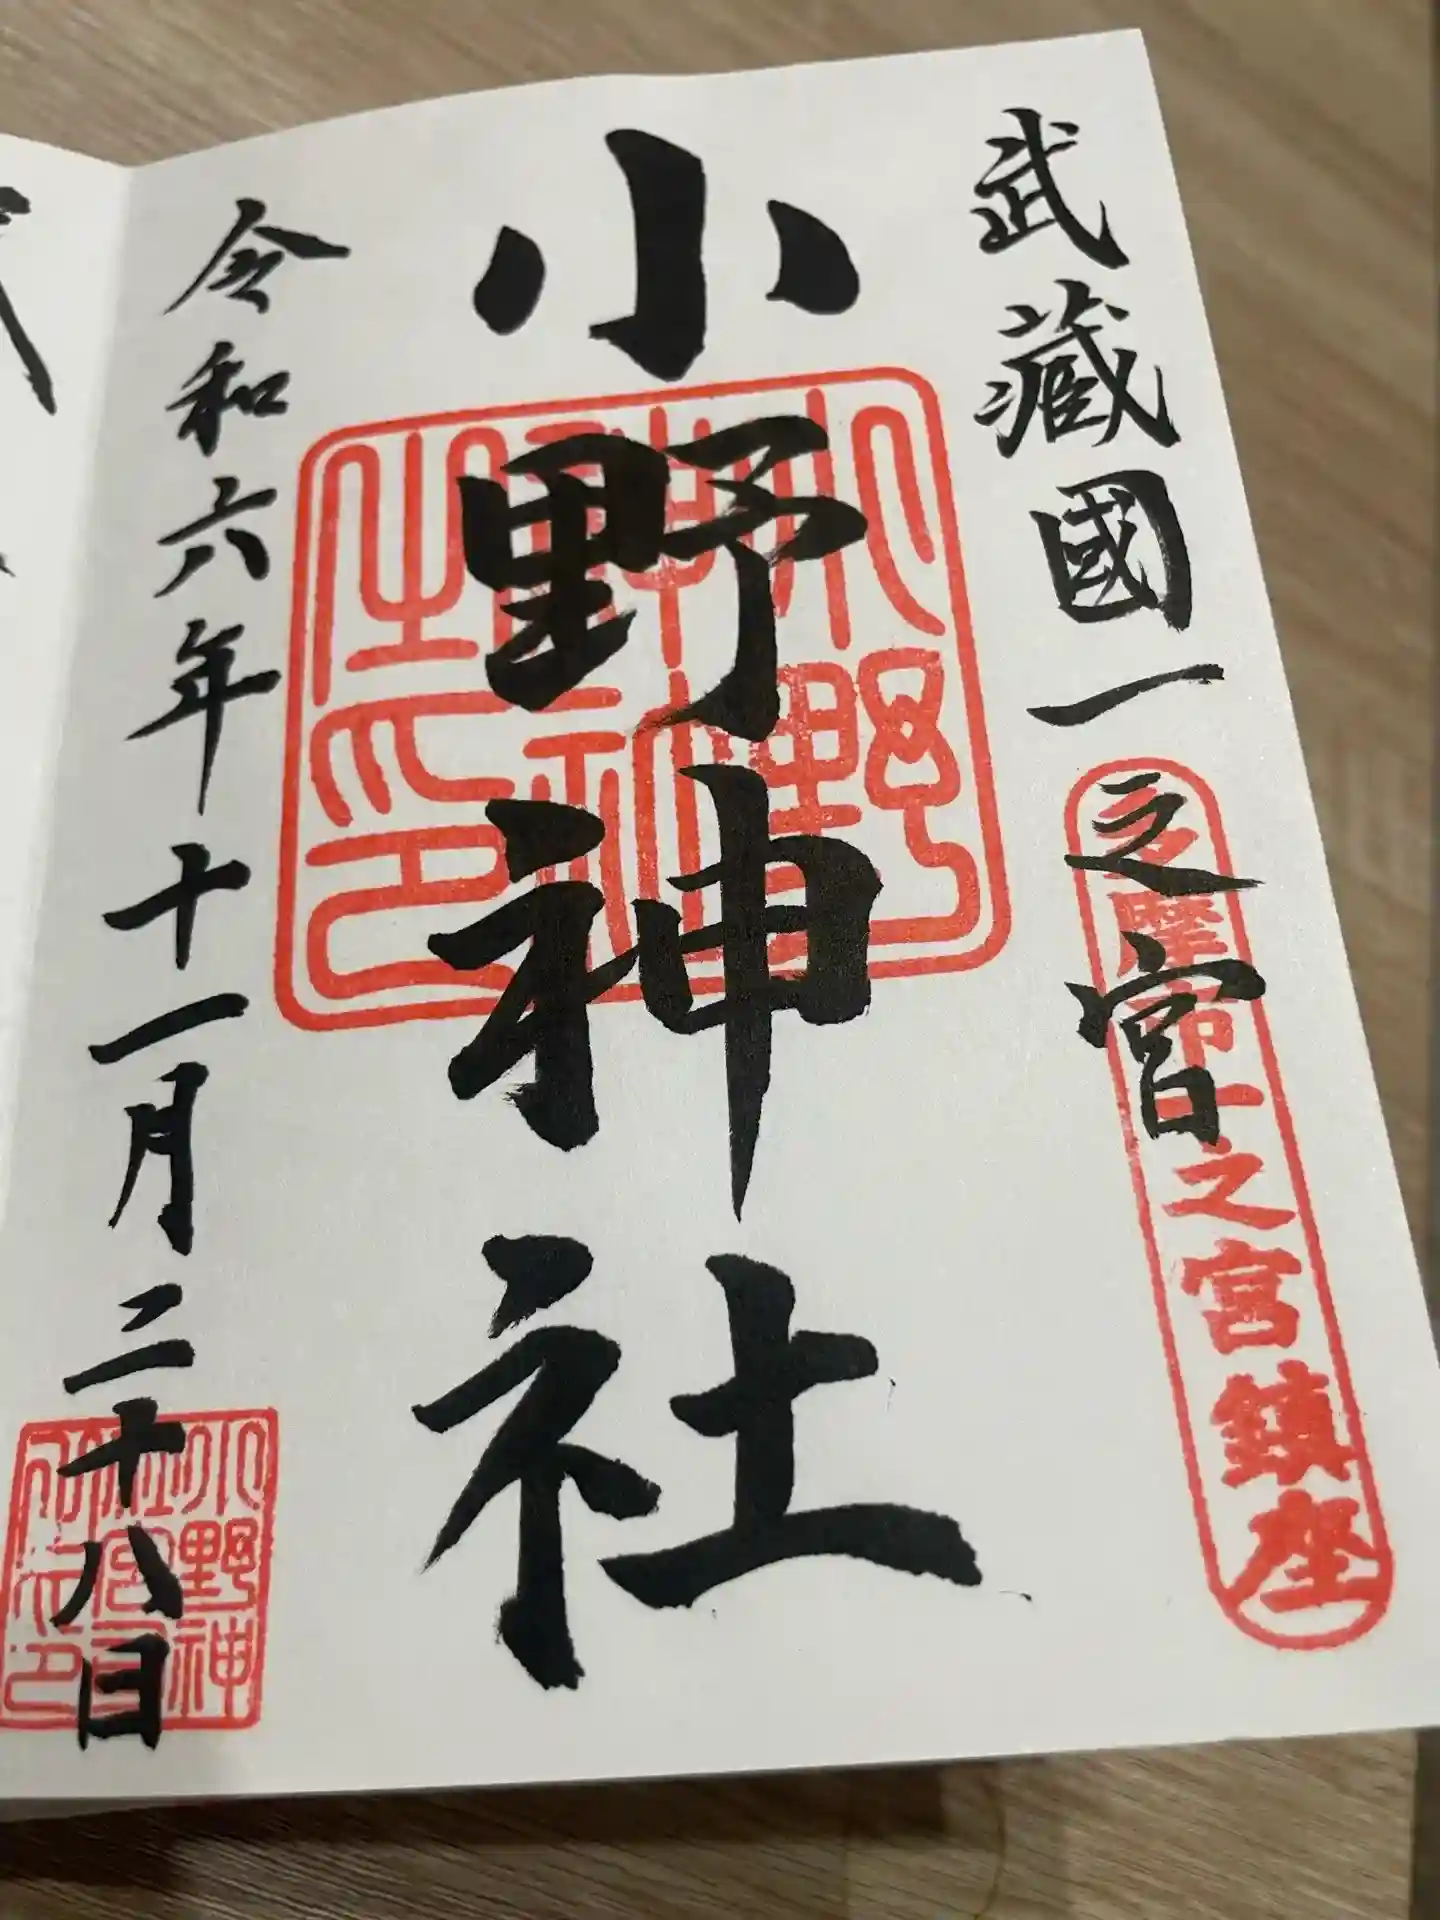 武蔵國一之宮
多摩市一之宮鎮座
小野神社
小野神社之印
令和六年十一月二十八日
小野神社宮司之印